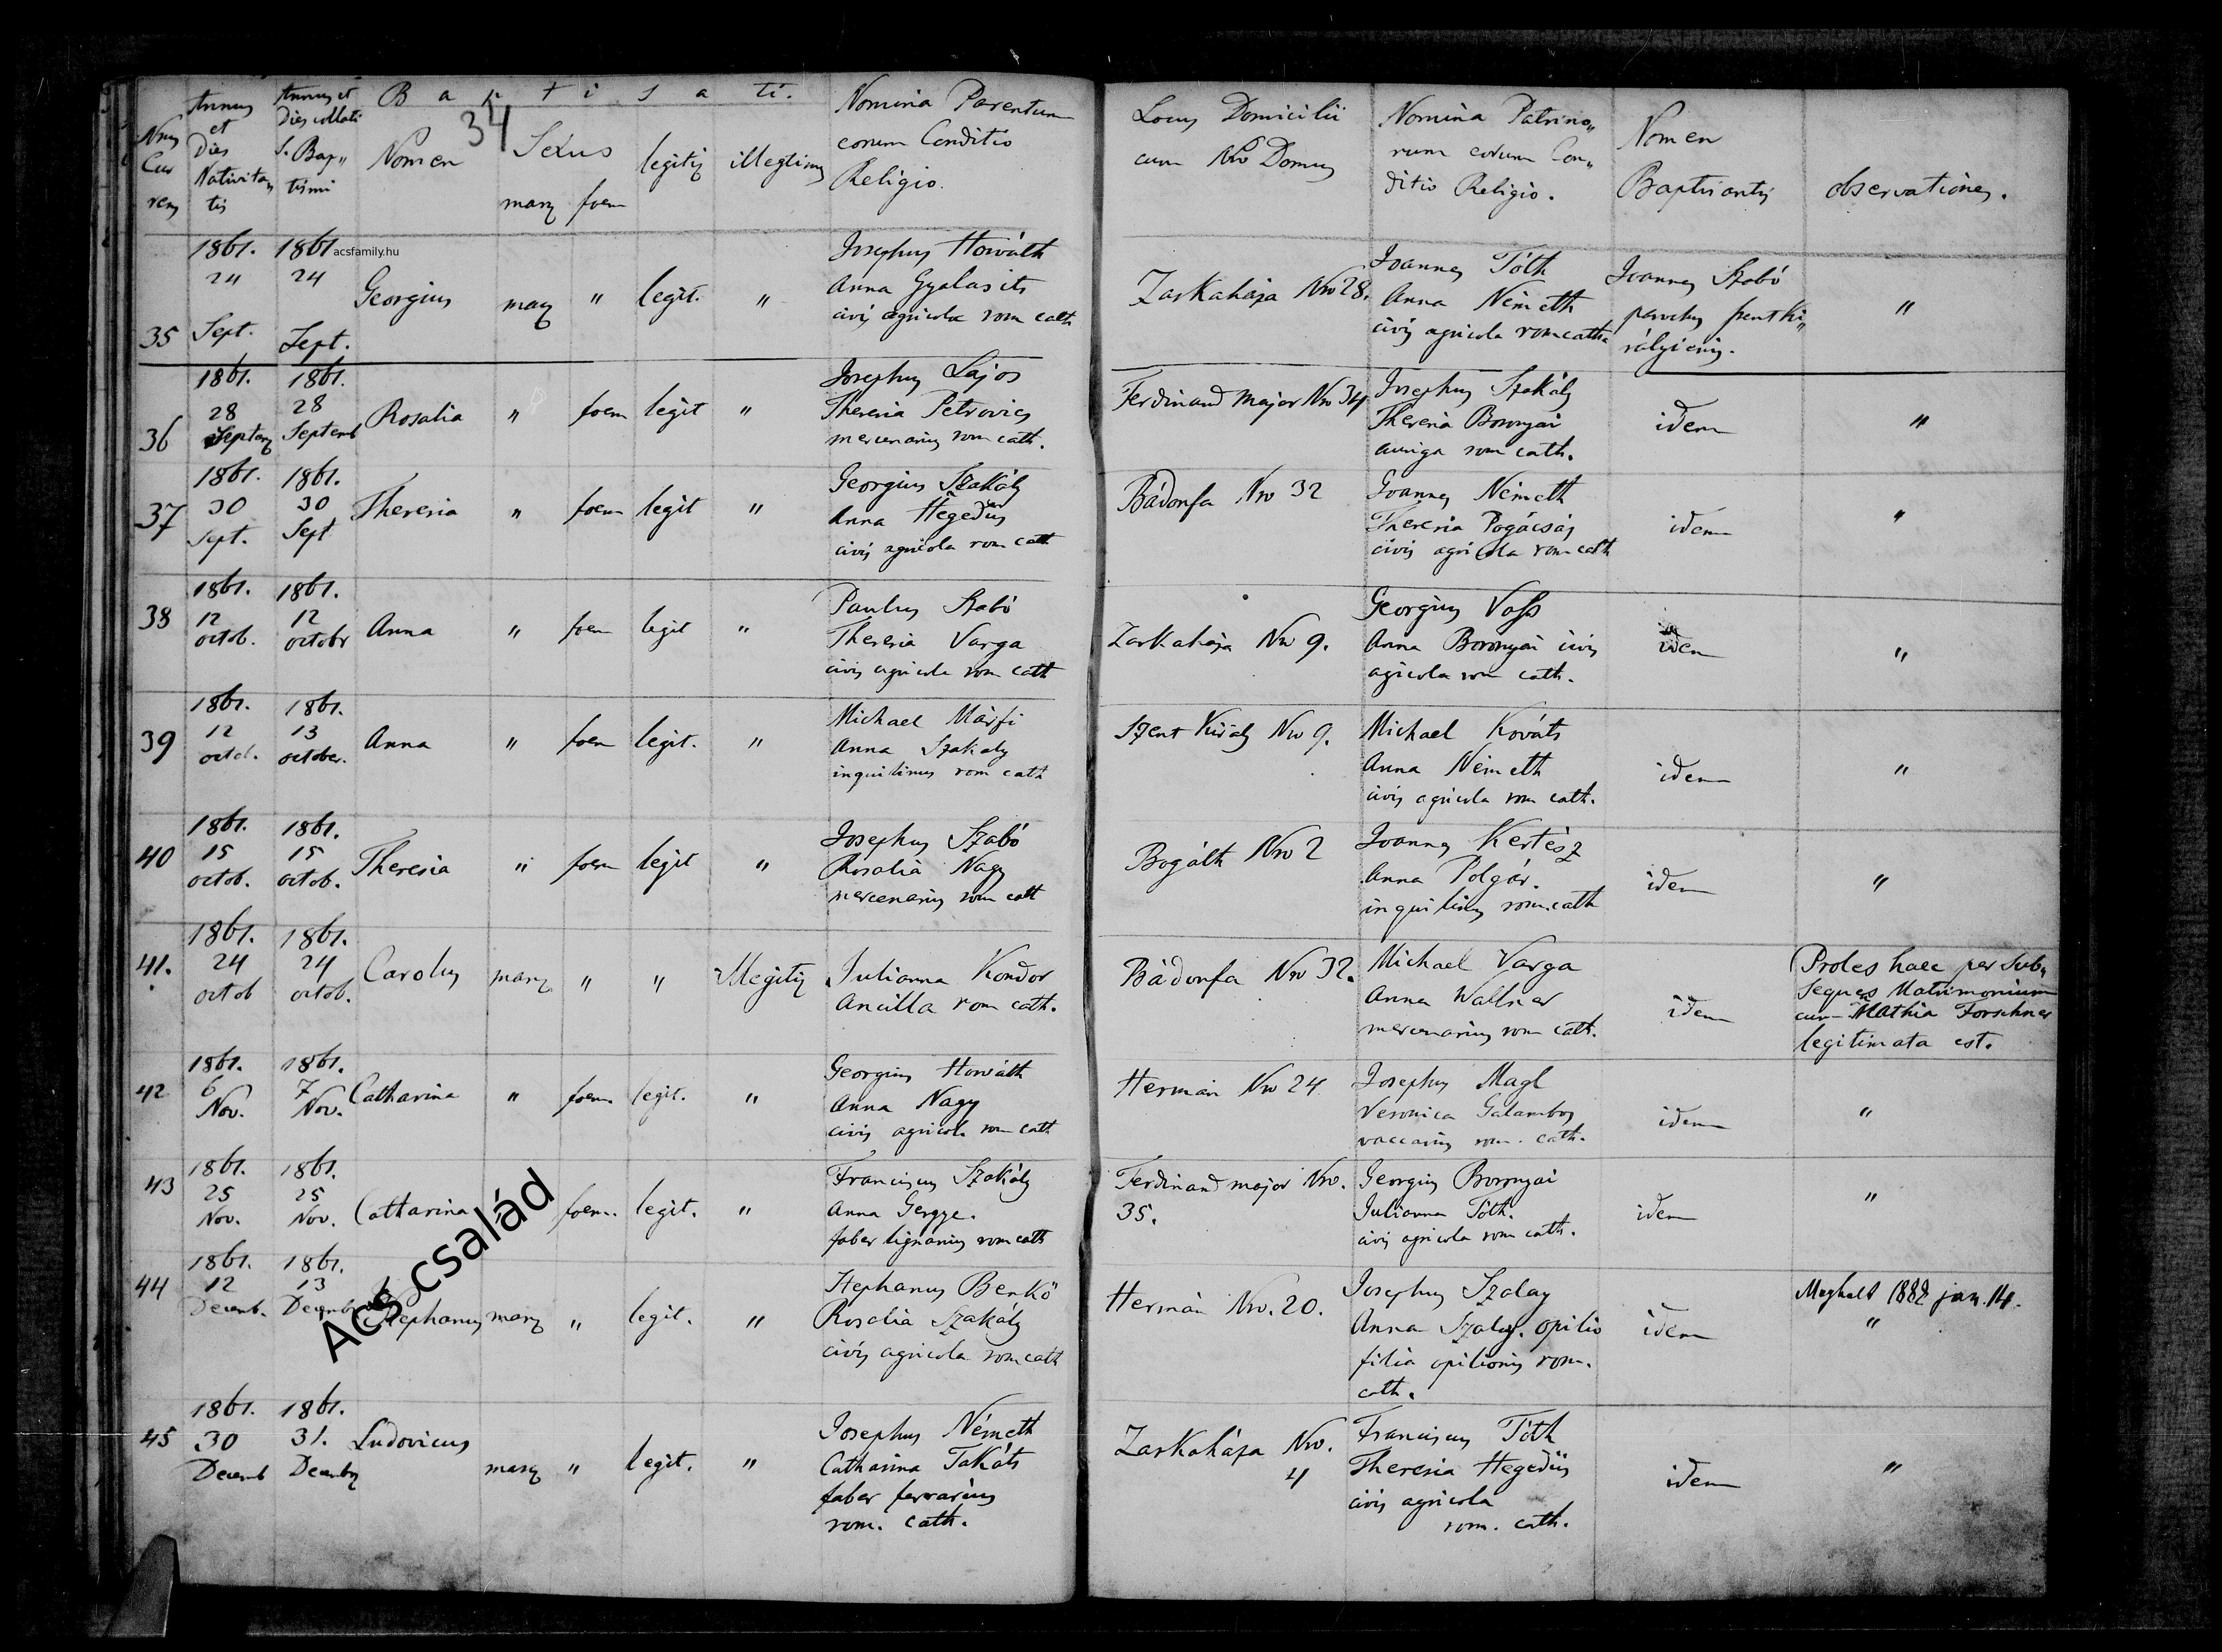 Nrus Cur rens
Annus et Dies Nativitatis
Annus et Dies collati S. Baptismi
Baptisati.
34
Nomen
Sexus
masq foem
legitiq
illegitimq
Nomina Parentum eorum Conditio Religio.
Locus Domicilii cum Nro Domus
Nomina Patrinorum eorum Conditio Religio.
Nomen Baptisantis
Observationes.
acsfamily.hu
35 1861. 24 Sept. 1861 24 Sept. Georgius masq " legit. "
Josephus Horváth
Anna Gyalasits
civis agricola rom cath
Zarkaháza Nro 28.
Joannes Tóth
Anna Németh
civis agricola rom cath
Joannes Szabó
parochus szentki„
rályiensis.
"
36 1861. 28 1861. 28 Septemb Rosalia " foem legit "
Josephus Lajos
Theresia Petrovics
mercenarius rom cath.
Ferdinand major Nro 34
Josephus Szakály
Theresia Boronyai
auriga rom cath.
idem
"
37 1861. 30 Sept. 1861. 30 Sept Theresia " foem legit "
Georgius Szakály
Anna Hegedüs
civis agricola rom cath
Bádonfa Nro 32
Joannes Németh
Theresia Pogácsás
civis agricola rom cath
idem
"
38 1861. 12 octob. 1861. 12 octobr Anna " foem legit "
Paulus Szabó
Theresia Varga
civis agricola rom cath
Zarkaháza Nro 9.
Georgius Vass
Anna Boronyai civis
agricola rom cath.
idem
"
39 1861. 12 1861. 13 october. Anna " foem legit. "
Michael Márfi
Anna Szakaly
inquilinus rom cath
Szent Király Nro 9.
Michael Kováts
Anna Németh
civis agricola rom cath.
idem
"
40 1861. 15 octob. 1861. 15 octob. Theresia " foem legit "
Josephus Szabó
Rosalia Nagy
mercenarius rom cath
Bogáth Nro 2
Joannes Kertész
Anna Polgár.
inquilinus rom. cath
idem
"
41. 1861. 24 octob 1861. 24 octob. Carolus masq " " illegitiq
Julianna Kondor
Ancilla rom cath.
Bádonfa Nro 32.
Michael Varga
Anna Wallner
mercenarius rom cath.
idem
Proles haec per Sub„
sequens Matrimonium
cum Mathia Forschner
legitimata est.
42 1861. 6 Nov. 1861. 7 Nov. Catharina " foem. legit. "
Georgius Horváth
Anna Nagy
civis agricola rom cath
Hermán Nro 24
Josephus Magl
Veronica Galambos
vaccarius rom. cath.
idem
"
43 1861. 25 Nov. 1861. 25 Nov. Catharina foem. legit. "
Franciscus Szakály
Anna Gergye.
faber lignarius rom cath
Ferdinand major Nro.
35.
Georgius Boronyai
Julianna Tóth.
civis agricola rom cath.
idem
"
44 1861. 12 Decemb. 1861. 13 Decemb Stephanus masq " legit. "
Stephanus Benkö
Rosalia Szakály
civis agricola rom cath
Hermán Nro. 20.
Josephus Szalay
Anna Szalay. opilio
filia opilionis rom.
cath.
idem
Meghalt 1882 jan. 14.
"
45 1861. 30 Decemb 1861. 31. Ludovicus masq " legit. "
Josephus Németh
Catharina Takáts
faber ferrarius
rom. cath.
Zarkaháza Nro.
4
Franciscus Tóth
Theresia Hegedüs
civis agricola
rom. cath.
idem
"
Acs család